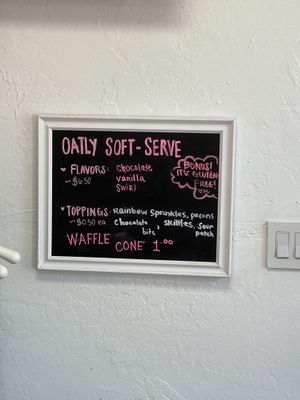 OATLY SOFT-SERVE
♥ FLAVORS: chocolate
~ $6.50 vanilla
swirl
BONUS!
IT'S GLUTEN
FREE!
♥ TOPPINGS: Rainbow sprinkles, pecans
~ $0.50 ea. chocolate bits, skittles, sour patch
WAFFLE CONE 1.00